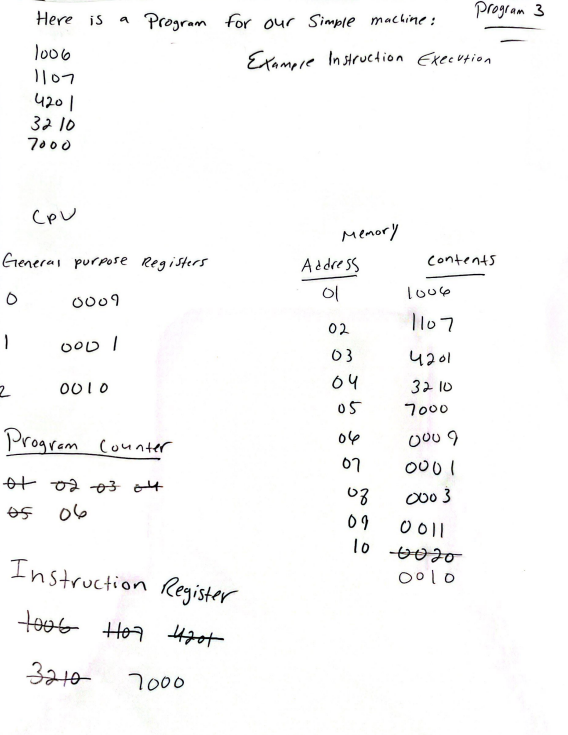 Here is a Program for our Simple machine: Program 3
Example Instruction Execution
1006
1107
4201
3210
7000
CPU
General purpose Registers
0 0009
1 0001
2 0010
Program Counter
01 02 03 04
05 06
Instruction Register
1006 1107 4201
3210 7000
Memory
Address Contents
01 1006
02 1107
03 4201
04 3210
05 7000
06 0009
07 0001
08 0003
09 0011
10 0020
0010